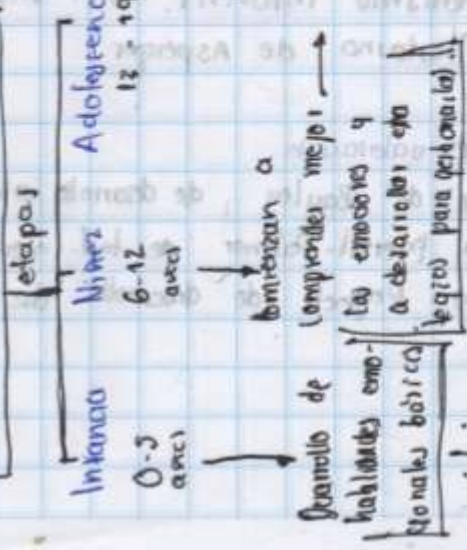 etapas
Infancia
0-5
años
Desarrollo de
habilidades emo-
cionales básicas
Niñez
6-12
años
Comienzan a
comprender mejor
las emociones y
a desarrollar estra
tegias para gestionarlas.
Adolescenc
12 - 19